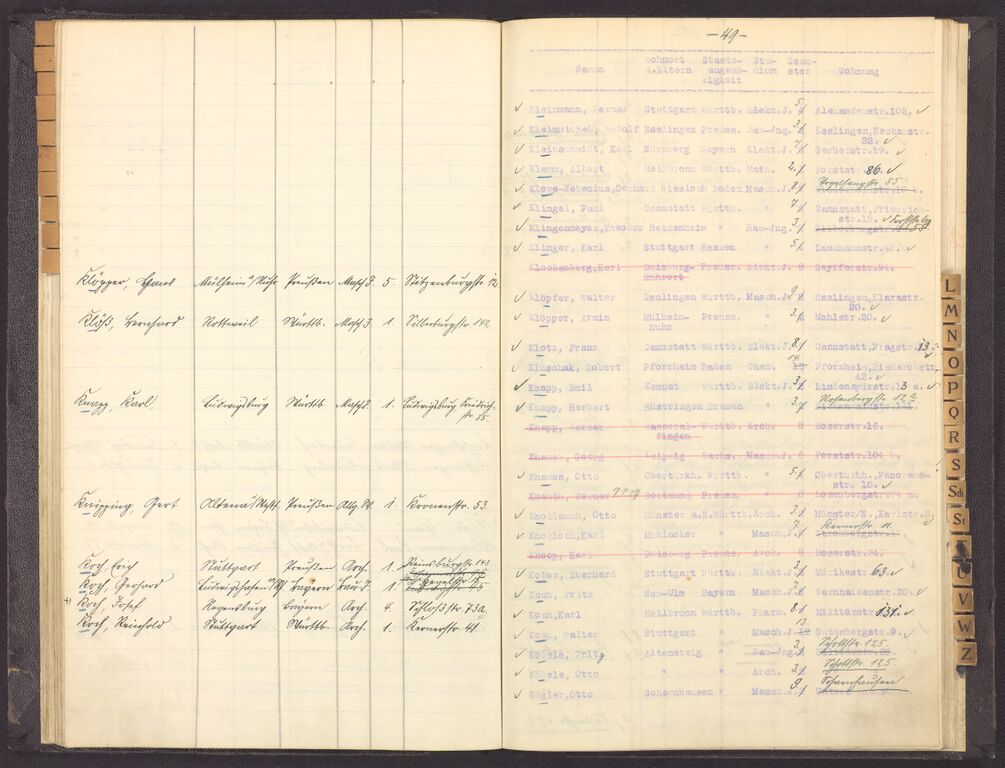 Klöpper, Hans Mülheim a/Ruhr Preußen Masch.J. 5. Stitzenburgstr. 12
Klöß, Bernhard Rottweil Württb. Masch.J. 1. Silberburgstr. 142
Knapp, Karl Ludwigsburg Württb. Masch.J. 1. Ludwigsburg, Friedrich-
str. 35.
Knipping Gert Altena Preußen 1. Kornerstr. 53.
Koch, Erich Stuttgart Preußen Arch. 1. Reinsburgstr. 143
Koch, Gerhard Ludwigshafen Bayern 1.
Koch, Josef Regensburg Bayern Arch. 4. Schloßstr. 73A
Koch, Reinhold Stuttgart Württb. Arch. 1. Kernerstr. 41.
-49-
Wohnort Staats- Stu- Seme-
Namen d.Eltern angehö- dium ster Wohnung
rigkeit
Kleinmann, Werner Stuttgart Württb. Elekt.J. 5 Alexanderstr.102.
Kleinmichel, Rudolf Esslingen Preuss. Bau-Jng. 3 Esslingen, Neckarstr.
22.
Kleinschmidt, Karl Nürnberg Bayern Elekt.J. 7 Gerberstr.19.
Klemm, Albert Heilbronn Württb. Math. 2. Forststr. 86.
Klemm-Nebenius, Gerhard Wiesloch Baden Masch.J. 8 Vogelsangstr. 55
Klingel, Paul Cannstatt Württb. " 7. Cannstatt, Friedrich-
str.15.
Klingenmeyer, Theodor Heidenheim " Bau-Jng. 3. Forststr.
Klinger, Karl Stuttgart Hessen " 5 Landhausstr.
Klockenberg, Karl Duisburg- Preuss. Elekt.J. 8 Seyfferstr.94.
Ruhrort
Klöpfer, Walter Esslingen Württb. Masch.J. 9 Esslingen, Klarastr.
20.
Klöpper, Armin Mülheim- Preuss. " 3. Mohlstr.20.
Ruhr
Klotz, Franz Cannstatt Württb. Elekt.J. 8. Cannstatt, Pragstr. 13
Kluschak, Robert Pforzheim Baden Chem. 14 Pforzheim, Bismarckstr.
42.
Knapp, Emil Kemnat Württb. Elekt.J. 3. Lindenspürstr. 13 a.
Knapp, Herbert Rüstringen Bremen " 3. Rosenbergstr. 129
Knapp, Werner Wasseral- Württb. Arch. 8 Moserstr.16.
fingen
Knauer, Georg Leipzig Sachs. Masch.J. 6 Forststr.104 b.
Knauss, Otto Obertürkh. Württb. " 5. Obertürkh., Panorama-
str. 10.
Knauth, Werner Dortmund Preuss. " 8 Rosenbergstr.
Knoblauch, Otto Münster a.N. Württb. Arch. 2. Münster/N., Karlstr.5.
Knobloch, Karl Mühlacker " Masch.J. 7 Kernerstr. 11.
Knoop, Karl Duisburg Preuss. Arch. 8 Moserstr.24.
Kober, Eberhard Stuttgart Württb. Elekt.J. 3. Mörikestr. 63.
Koch, Fritz Neu-Ulm Bayern Masch.J. 5. Wernhaldenstr.20.
Koch, Karl Heilbronn Württb. Pharm. 8. Militärstr. 131.
Koch, Walter Stuttgart " Masch.J. 13. 12 Gutenbergstr.9.
Köbele, Fritz Altensteig " Bau-Jng. 3. Schottstr. 125
Kögele, Otto " " Arch. 3. Schottstr. 125
Kögler, Otto Scharnhausen " Masch. 9. Scharnhausen
L
M
N
O
P
Q
R
S
Sch
St
U
V
W
Z